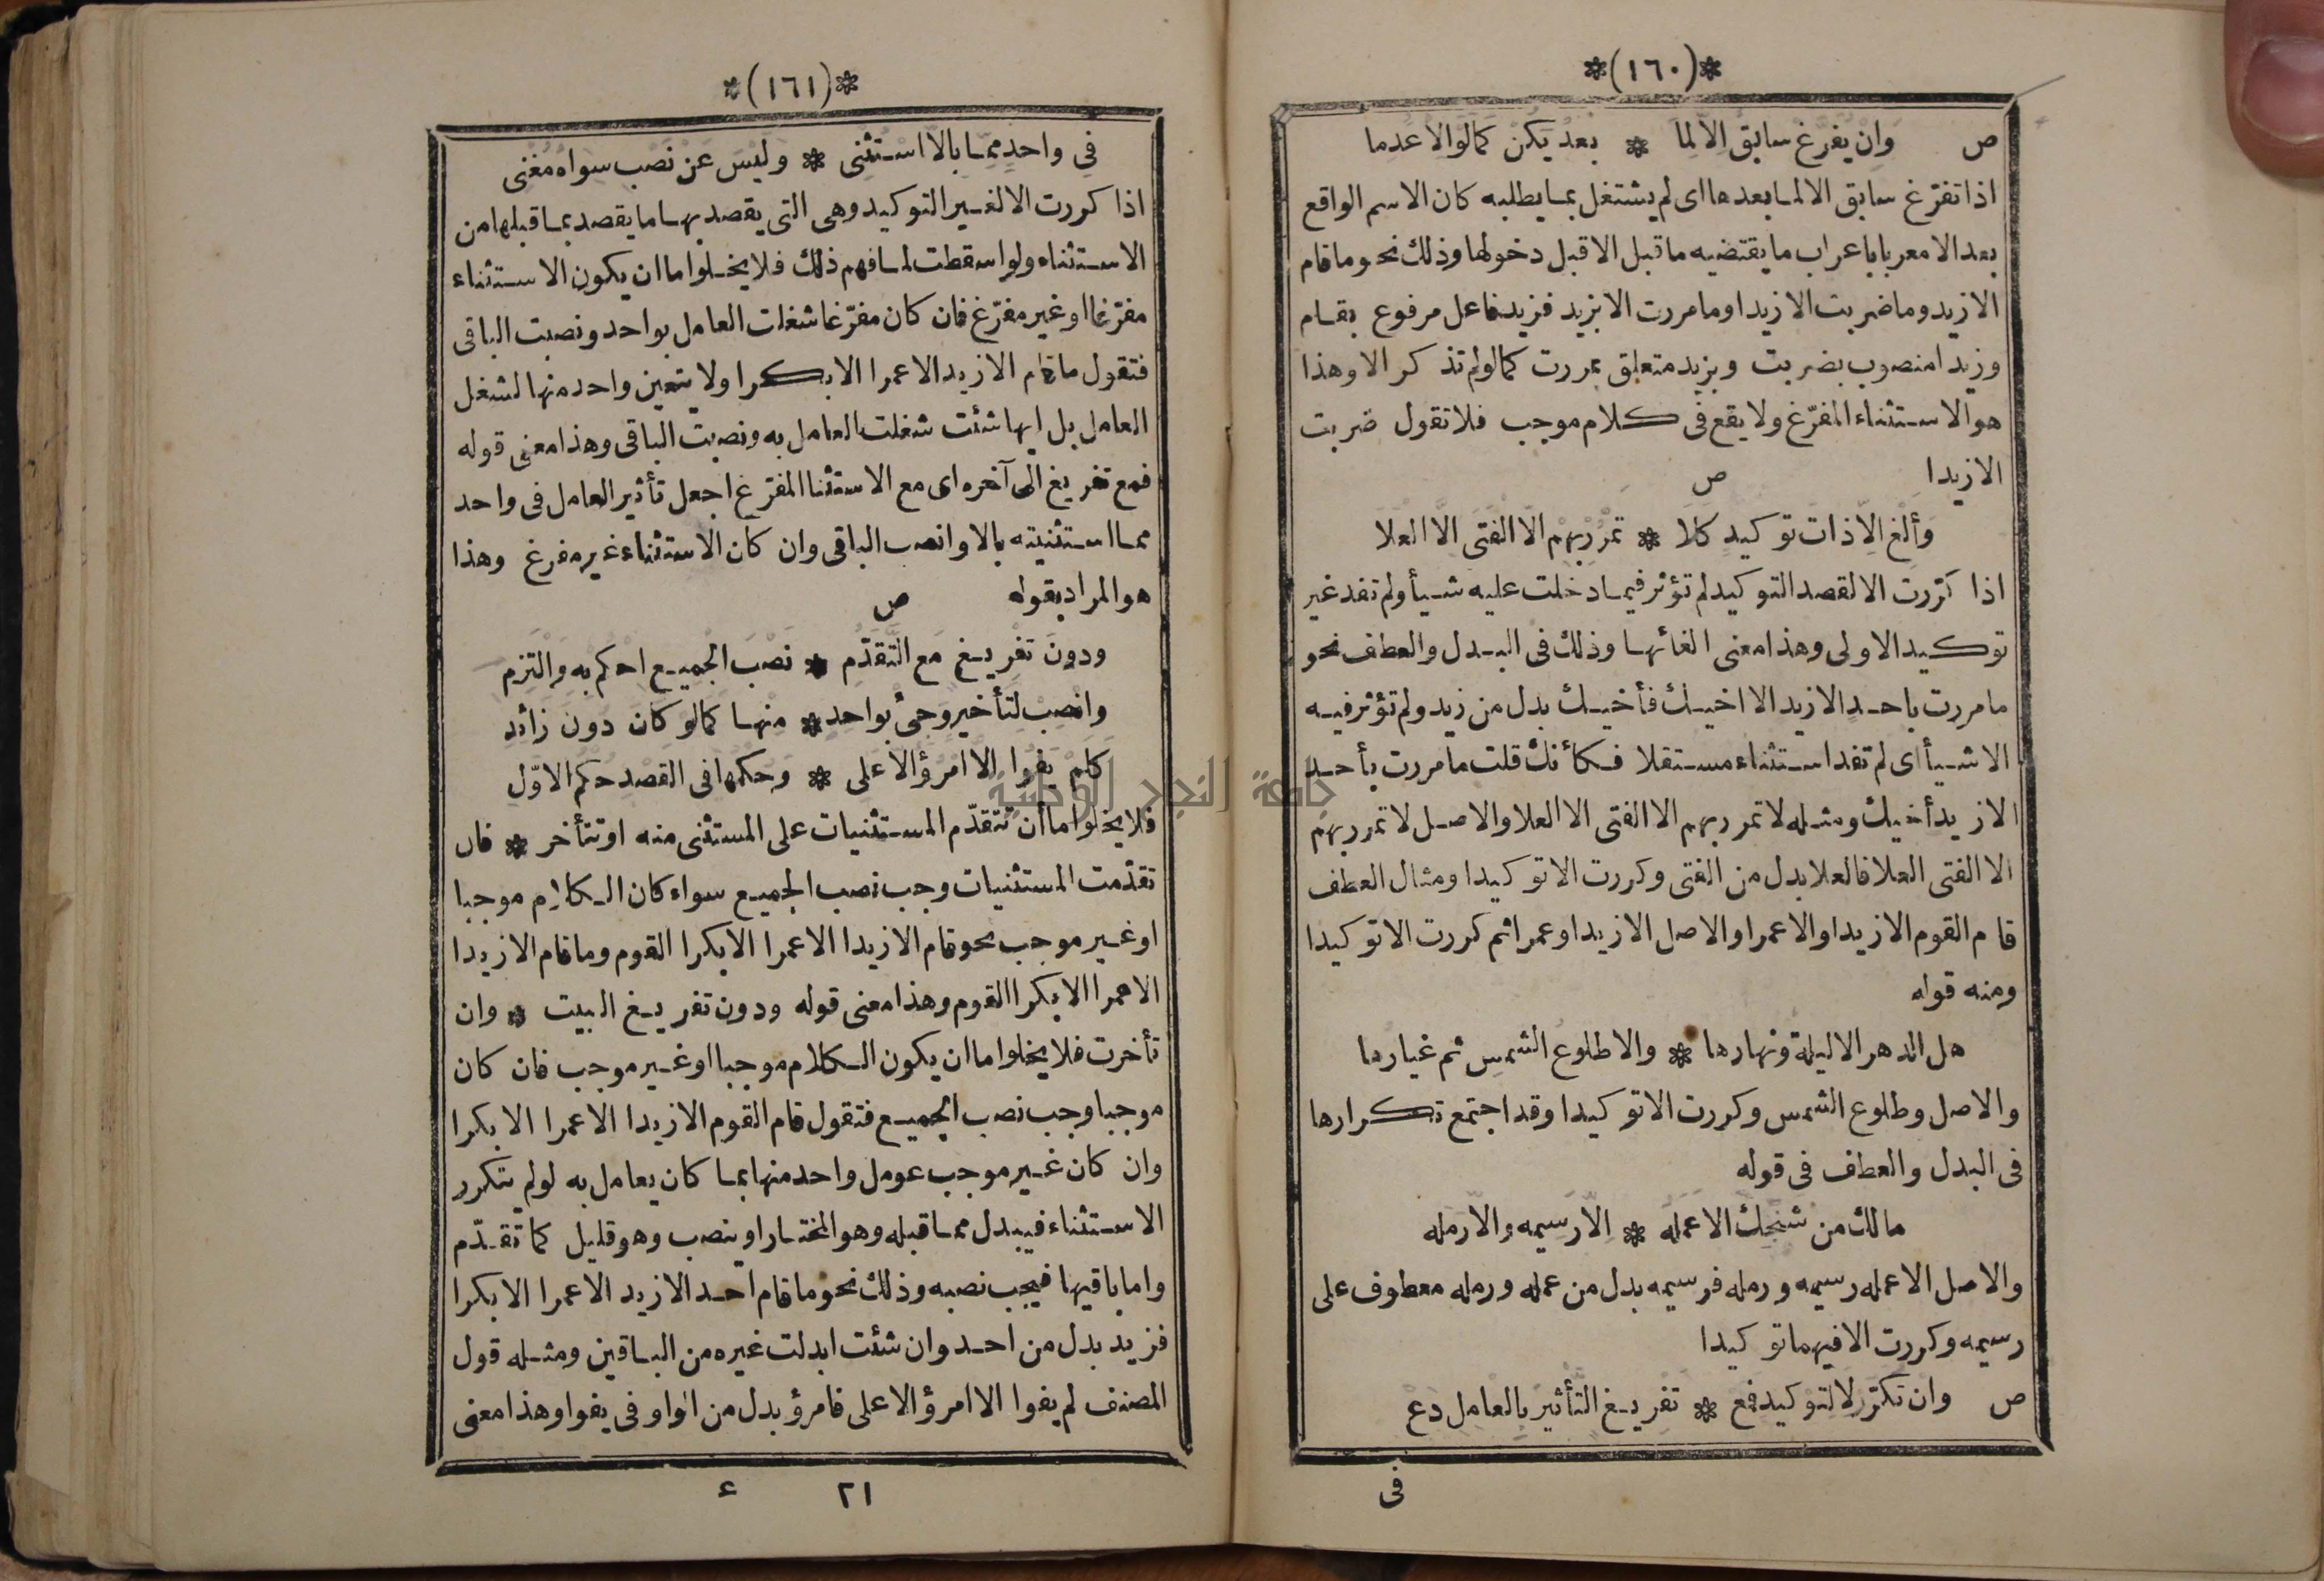 *(١٦٠)*
ص وَاِنْ يُفَرَّغْ سَابِقٌ اِلَّا لِمَا * بَعْدُ يَكُنْ كَمَا لَوِ الَّا عُدِمَا
اذا تفرّغ سابق الا لما بعدها اى لم يشتغل بما يطلبه كان الاسم الواقع
بعد الا معربا باعراب ما يقتضيه ما قبل الا قبل دخولها وذلك نحو ما قام
الا زيد وما ضربت الا زيدا وما مررت الا بزيد فزيد فاعل مرفوع بقام
وزيدا منصوب بضربت وبزيد متعلق بمررت كما لو لم تذكر الا وهذا
هو الاستثناء المفرّغ ولا يقع فى كلام موجب فلا تقول ضربت
الا زيدا ص
وَأَلْغِ اِلَّا ذَاتَ تَوْكِيدٍ كَلَا * تَمْرُرْ بِهِمْ اِلَّا الْفَتَى اِلَّا الْعَلَا
اذا كرّرت الا لقصد التوكيد لم تؤثر فيما دخلت عليه شيأ ولم تفد غير
توكيد الاولى وهذا معنى الغائها وذلك فى البدل والعطف نحو
ما مررت باحد الا زيد الا اخيك فأخيك بدل من زيد ولم تؤثر فيه
الا شيأ اى لم تفد استثناء مستقلا فكأنك قلت ما مررت بأحد
الا زيد أخيك ومثله لا تمرر بهم الا الفتى الا العلا والاصل لا تمرر بهم
الا الفتى العلا فالعلا بدل من الفتى وكررت الا توكيدا ومثال العطف
قام القوم الا زيدا والا عمرا والاصل الا زيدا وعمرا ثم كررت الا توكيدا
ومنه قوله
هل الدهر الا ليلة ونهارها * والا طلوع الشمس ثم غيارها
والاصل وطلوع الشمس وكررت الا توكيدا وقد اجتمع تكرارها
فى البدل والعطف فى قوله
مالك من شَنْجِكَ الا عمله * اِلَّا رَسِيمه والّا رمله
والاصل الا عمله رسيمه ورمله فرسيمه بدل من عمله ورمله معطوف على
رسيمه وكررت الا فيهما توكيدا
ص وان تكرّر لا لتوكيد فمع * تفريغ التّأثير بالعامل دع
فى
*(١٦١)*
فى واحد ممّا بالا استثنى * وليس عن نصب سواه مغنى
اذا كررت الا لغير التوكيد وهى التى يقصد بها ما يقصد بما قبلها من
الاستثناء ولو اسقطت لما فهم ذلك فلا يخلوا ما ان يكون الاستثناء
مفرّغا او غير مفرّغ فان كان مفرّغا شغلت العامل بواحد ونصبت الباقى
فتقول ما قام الا زيد الا عمرا الا بكرا ولا يتعين واحد منها لشغل
العامل بل ايها شئت شغلت العامل به ونصبت الباقى وهذا معنى قوله
فمع تفريغ الى آخره اى مع الاستثنا المفرّغ اجعل تأثير العامل فى واحد
مما استثنيته بالا وانصب الباقى وان كان الاستثناء غير مفرغ وهذا
هو المراد بقوله ص
ودون تفريغ مع التّقدّم * نصب الجميع احكم به والتزم
وانصب لتأخير وجئ بواحد * منها كما لو كان دون زائد
كلم يفوا الا امرؤ الا على * وحكمها فى القصد حكم الاوّل
فلا يخلوا ما أن تتقدّم المستثنيات على المستثنى منه او تتأخر * فان
تقدّمت المستثنيات وجب نصب الجميع سواء كان الكلام موجبا
او غير موجب نحو قام الا زيدا الا عمرا الا بكرا القوم وما قام الا زيدا
الا عمرا الا بكرا القوم وهذا معنى قوله ودون تفريغ البيت * وان
تأخرت فلا يخلوا ما ان يكون الكلام موجبا او غير موجب فان كان
موجبا وجب نصب الجميع فتقول قام القوم الا زيدا الا عمرا الا بكرا
وان كان غير موجب عومل واحد منها بما كان يعامل به لو لم يتكرر
الاستثناء فيبدل مما قبله وهو المختار او ينصب وهو قليل كما تقدّم
واما باقيها فيجب نصبه وذلك نحو ما قام احد الا زيد الا عمرا الا بكرا
فزيد بدل من احد وان شئت ابدلت غيره من الباقين ومثله قول
المصنف لم يفوا الا امرؤ الا على فامرؤ بدل من الواو فى يفوا وهذا معنى
٢١ ء
جامعة النجاح الوطنية